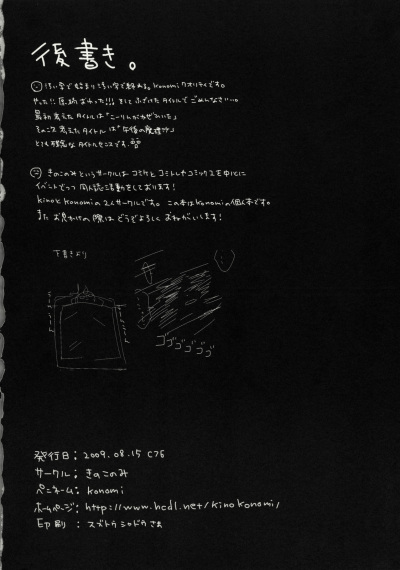 後書き。
まんで始まりまんで終わる。konomiクオリティです。
やった!!原稿おわった!!! そしてふざけたタイトルでごめんなさい…。
最初考えたタイトルは「こーりんがかぜひいた」
その次考えたタイトルは「午後の
とても残念なタイトルセンスです。
きのこのみというサークルはコミケとコミトレやコミックを中心に
イベントでつつ同人誌活動をしております!
kinoとkonomiの2人サークルです。この本はkonomiの個人本です。
また お見かけの際はどうぞよろしくおねがいします!
下書きより
ゴゴゴゴゴゴ
発行日; 2009.08.15 C76
サークル; きのこのみ
ペンネーム; konomi
ホームページ; http://www.hcdl.net/kinokonomi/
印刷; スズトウシャドウさま